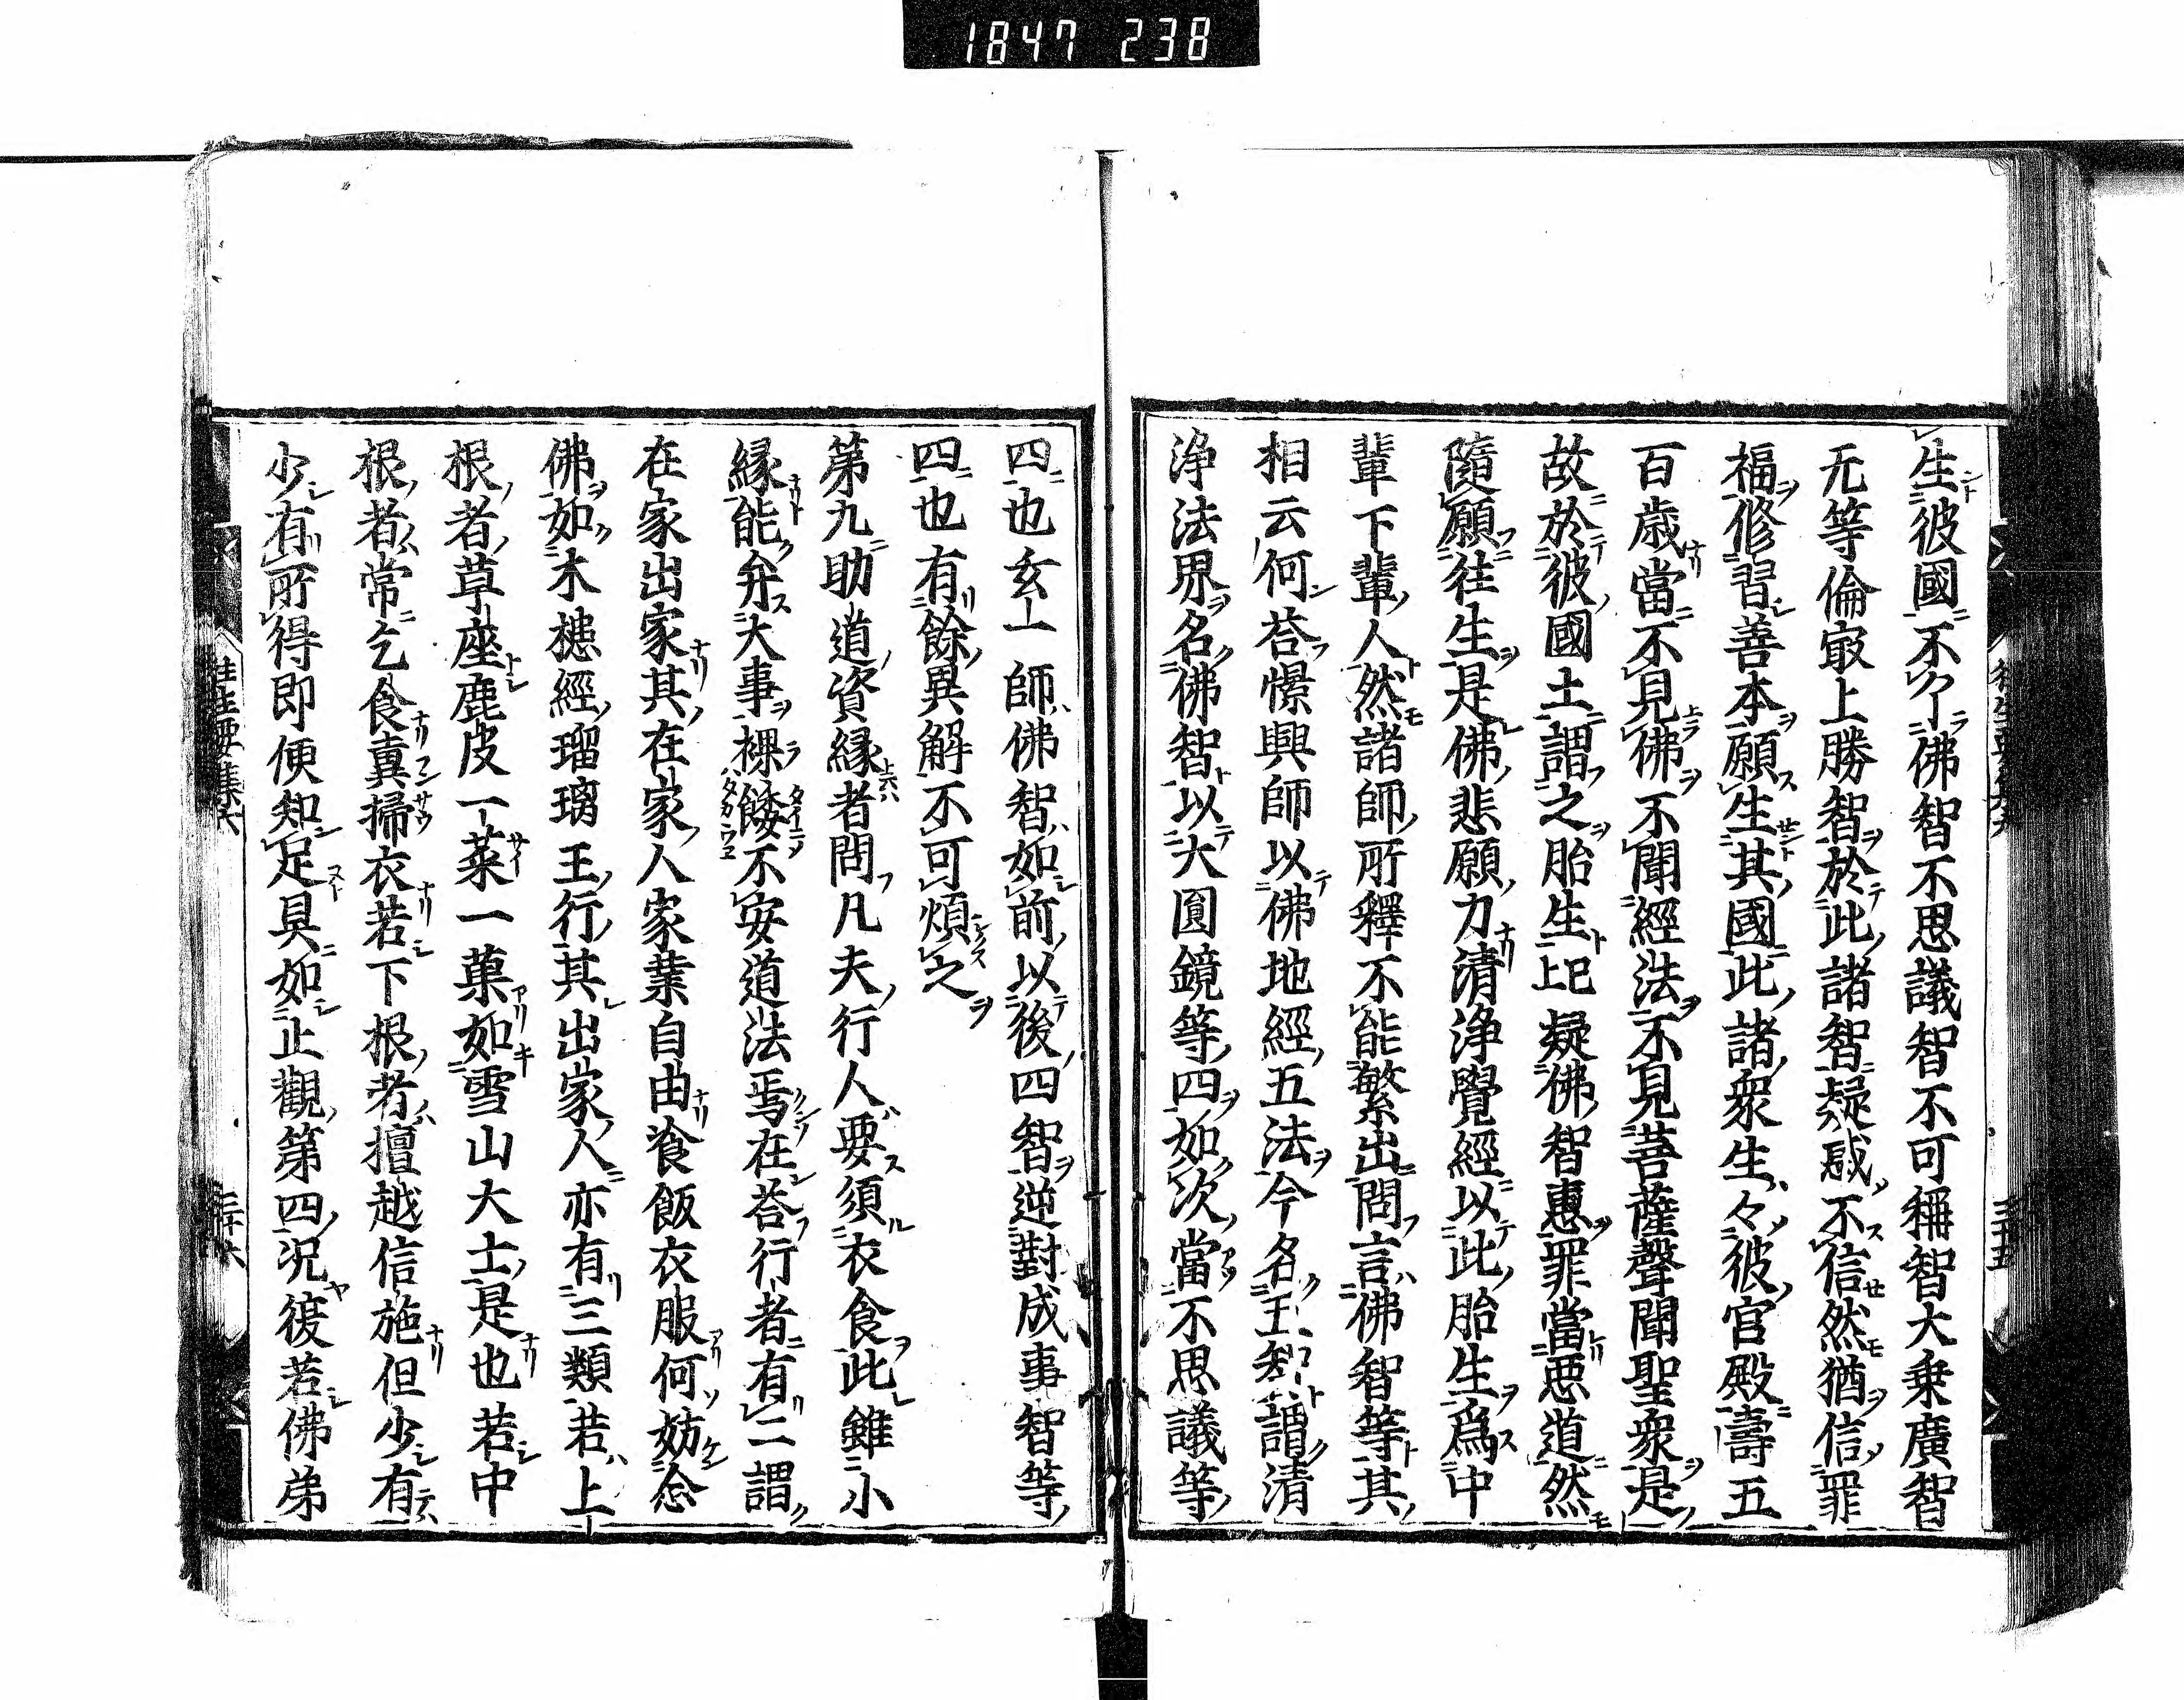 1847 238
生彼國不了佛智不思議智不可稱智大乗廣智
无等倫㝡上勝智於此諸智疑惑不信然猶信罪
福修習善本願生其國此諸衆生々彼宮殿壽五
百歳當不見佛不聞經法不見菩薩聲聞聖衆是
故於彼國土謂之胎生上巳疑佛智惠罪當悪道然
隨願徃生是佛悲願力清浄覺經以此胎生爲中
輩下輩人然諸師所釋不能繁出問言佛智等其
相云何荅憬興師以佛地經五法今名五智謂清
浄法界名佛智以大圓鏡等四如次當不思議等
四也玄一師佛智如前以後四智逆對成事智等
四也有餘異解不可煩之
第九助道資縁者問凡夫行人要須衣食此雖小
縁能弁大事裸餧不安道法焉在荅行者有二謂
在家出家其在家人家業自由飡飯衣服何妨念
佛如木槵經瑠璃王行其出家人亦有三類若上
根者草座鹿皮一菜一菓如雪山大士是也若中
根者常乞食糞掃衣若下根者檀越信施但少有
少有所得即便知足具如止觀第四况復若佛弟